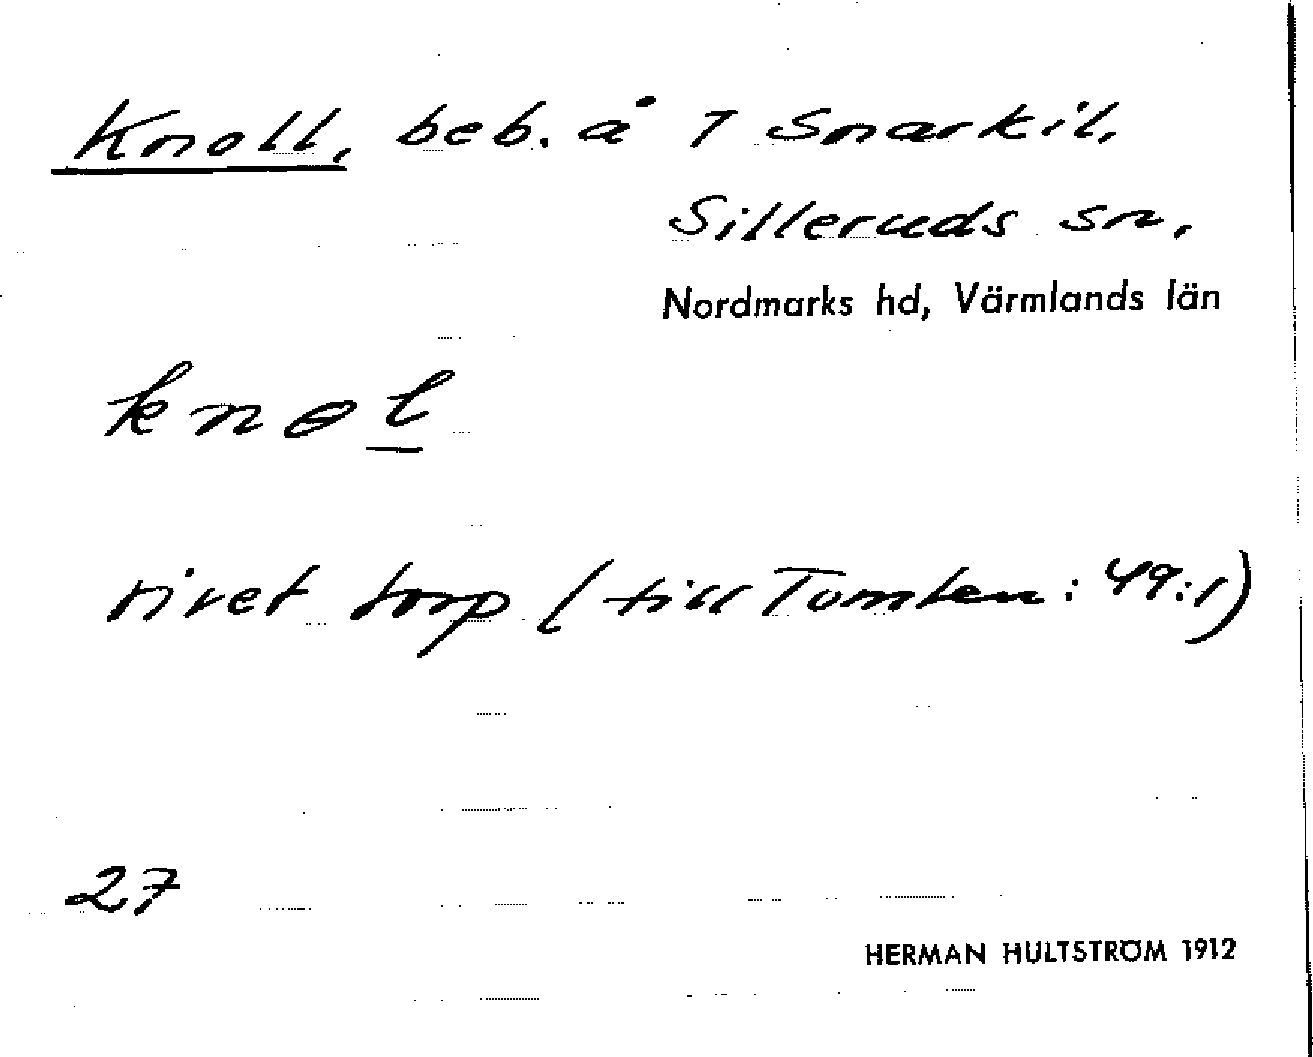 Knoll, beb. å 7 Snarkil,
Silleruds sn,
Nordmarks hd, Värmlands län
knɵl
rivet torp (till Tomten: 49:1)
27
HERMAN HULTSTRÖM 1912